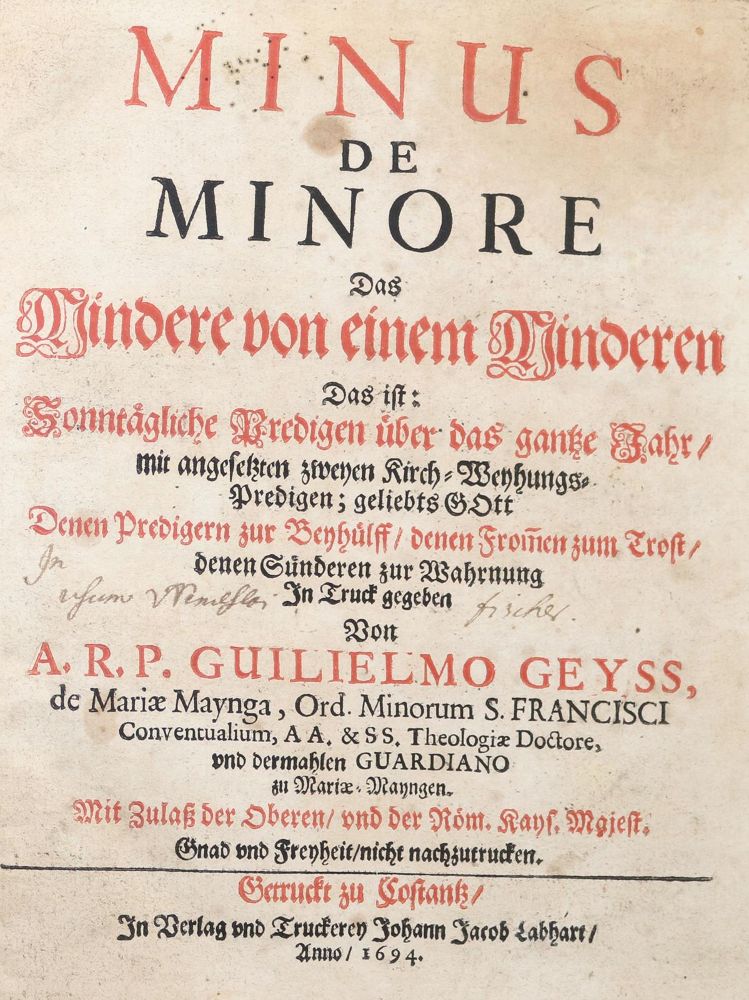 MINUS
DE
MINORE
Das
Mindere von einem Minderen
Das ist:
Sonntägliche Predigen über das gantze Jahr/
mit angesetzten zweyen Kirch-Weyhungs-
Predigen; geliebts GOtt
Denen Predigern zur Beyhülff/ denen From̃en zum Trost/
denen Sünderen zur Wahrnung
In
In Truck gegeben
usum fischer.
Von
A. R. P. GUILIELMO GEYSS,
de Mariæ Maynga, Ord. Minorum S. FRANCISCI
Conventualium, A A. & S S. Theologiæ Doctore,
vnd dermahlen GUARDIANO
zu Mariæ-Mayngen.
Mit Zulaß der Oberen/ vnd der Röm. Kays. Majest.
Gnad vnd Freyheit/nicht nachzutrucken.
Getruckt zu Costantz/
In Verlag vnd Truckerey Johann Jacob Labhart/
Anno/ 1694.